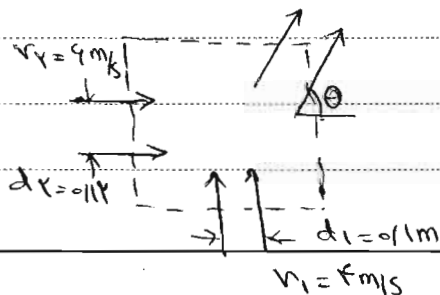 v۲ = ۶ m/s
θ
d۲ = ۰/۱۲
d۱ = ۰/۱m
v۱ = ۴m/s